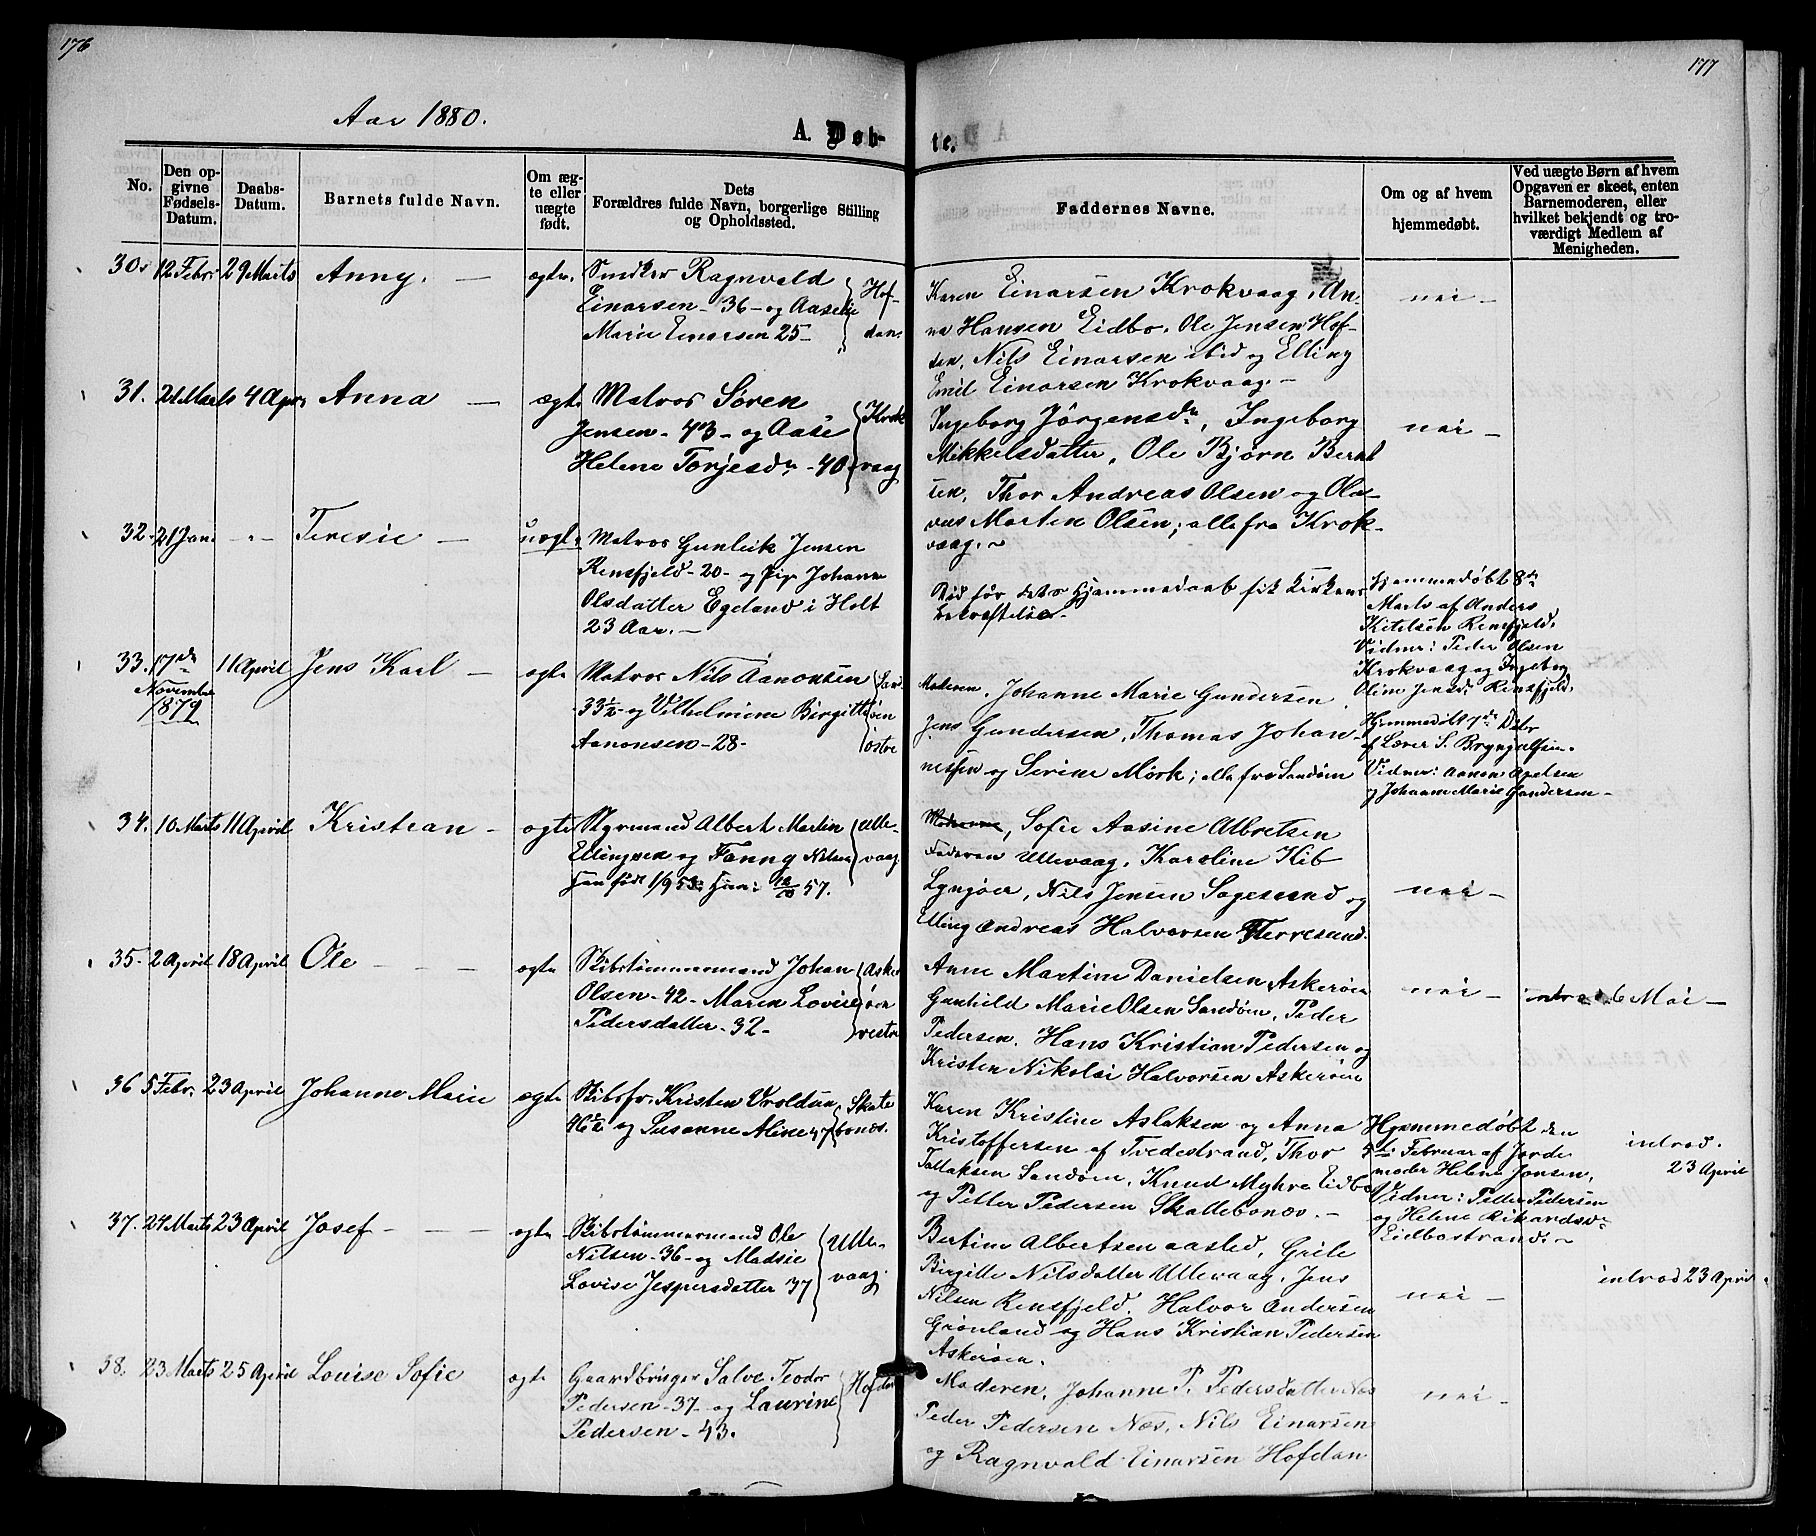 176
177
Aar 1880.
A. Døb-
te.
No.
Den op-
givne
Fødsels-
Datum.
Daabs-
Datum.
Barnets fulde Navn.
Om æg-
te eller
uægte
født.
Dets
Forældres fulde Navn, borgerlige Stilling
og Opholdssted.
Faddernes Navne.
Om og af hvem
hjemmedøbt.
Ved uægte Børn af hvem
Opgaven er skeet, enten
Barnemoderen, eller
hvilket bekjendt og tro-
værdigt Medlem af
Menigheden.
30. 12 Febr 29 Marts Anny. — ægte. Snedker Ragnvald
Einarsen - 36 - og Aaselie
Marie Einarsen 25 -
Hof-
dan.
Karen Einarsen Krokvaag, An-
na Hansen Eidbo, Ole Jensen Hof-
dan, Nils Einarsen ibid og Elling
Emil Einarsen Krokvaag. —
nei —
31. 21 Marts 4 Apr. Anna — ægte Matros Søren
Jensen - 43 - og Aase
Helene Torjesdr - 40
Krok
vaag
Ingeborg Jørgensdr, Ingeborg
Mikkelsdatter, Ole Bjørn Bernt
sen, Thor Andreas Olsen og Ola-
vus Morten Olsen; alle fra Krok-
vaag. ~
nei —
32. 21 Jan. - " - Teresie — uægte Matros Gunleik Jensen
Rensfjeld - 20 - og Pige Johanne
Olsdatter Egeland i Holt
23 Aar. —
Død før dets Hjemmedaab fik Kirkens
bekræftelse.
Hjemmedøbt 8de
Marts af Anders
Kitelsen Rensfjeld.
Vidner: Peder Olsen
Krokvaag og Ingeborg
Oline Jensdr Rensfjeld.
33. 17de
November
1879
11 April Jens Karl — ægte Matros Nils Aanonsen
33½ - og Vilhelmine Birgitte
Aanonsen - 28 -
Sand-
øen
østre
Moderen, Johanne Marie Gundersen
Jens Gundersen, Thomas Johan-
nessen og Serine Mørk; alle fra Sandøen
Hjemmedøbt 7de Dcbr
af Lærer S. Bryngelsen.
Vidner: Aanon Apelsen
og Johanne Marie Gundersen —
34. 10 Marts 11 April Kristian — ægte Styrmand Albert Martin
Ellingsen og Fanny Nilsen
Han født 1/9 53: Hun: 12/10 57.
Ulle-
vaag
Sofie Aasine Albretsen
Faderen Ullevaag, Karoline Kib
Lyngøer, Nils Jensen Sagesund og
Elling Andreas Halvorsen Flerresund.
nei —
35. 2 April 18 April Ole — — — ægte Skibstømmermand Johan
Olsen - 42 - Maren Lovise
Pedersdatter - 32 -
Asker
øen
vestre
Anne Martine Danielsen Askerøen
Gunhild Marie Olsen Sandøen, Peder
Pedersen, Hans Kristian Pedersen og
Kristen Nikolai Halvorsen Askerøen
nei —
introd. 6 Mai —
36 5 Febr. 23 April Johanne Marie ægte Skibsfør. Kristen Vroldsen
46½ og Susanne Aline 47
Skate
bonæs.
Karen Kristine Aslaksen og Anna
Kristoffersen af Tvedestrand, Thor
Tallaksen Sandøen, Knud Myhre Eidbo
og Petter Pedersen Skattebonæs. —
Hjemmedøbt den
5te Februar af Jorde
moder Helene Jensen,
Vidner: Petter Pedersen
og Helene Rikardsdr
Eidbostrand. ~
introd.
23 April
37. 24 Marts 23 April Josef — — — ægte Skibstømmermand Ole
Nilsen - 36 - og Madsie
Lovise Jespersdatter 37
Ulle-
vaag.
Bertine Albertsen aasted, Grile
Birgitte Nilsdatter Ullevaag, Jens
Nilsen Rensfjeld, Halvor Andersen
Grønland og Hans Kristian Pedersen
Askerøen.
nei —
introd 23 April
38. 23 Marts 25 April Louise Sofie ægte Gaardbruger Salve Teodor
Pedersen - 37 - og Laurine
Pedersen - 43.
Hofdan
Moderen, Johanne P. Pedersdatter Næs
Peder Pedersen Næs, Nils Einarsen
og Ragnvald Einarsen Hofdan
nei —